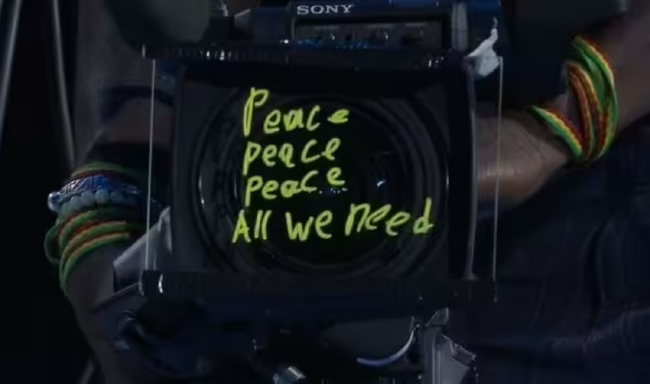 SONY
Peace
peace
peace
All we need